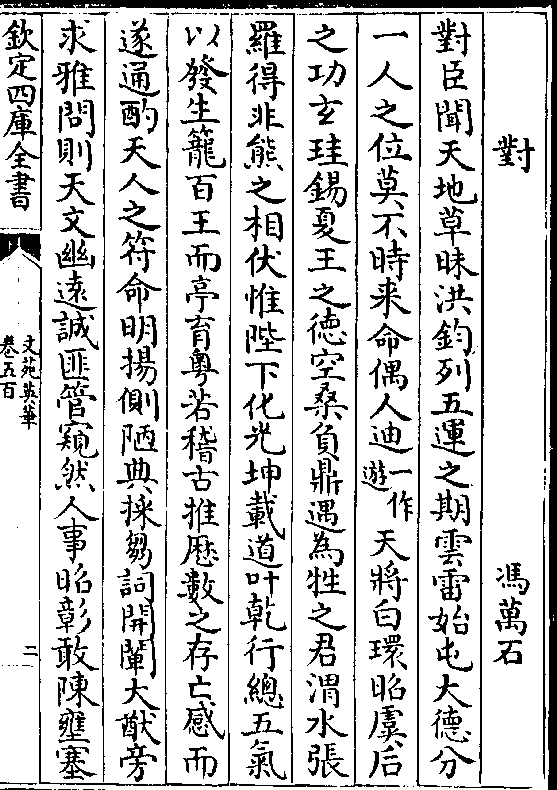 對　馮萬石
對臣聞天地草昧洪鈞列五運之期雲雷始屯大德分
一人之位莫不時来命偶人迪一作遊天將白環昭虞后
之功玄珪錫夏王之德空桑負鼎遇為牲之君渭水張
羅得非熊之相伏惟陛下化光坤載道叶乾行總五氣
以發生籠百王而亭育粤若稽古推厯數之存亡感而
遂通酌天人之符命明揚側陋典採芻詞開闡大猷旁
求雅問則天文幽遠誠匪管窺然人事昭彰敢陳壅塞
欽定四庫全書
文苑英華
卷五百
二